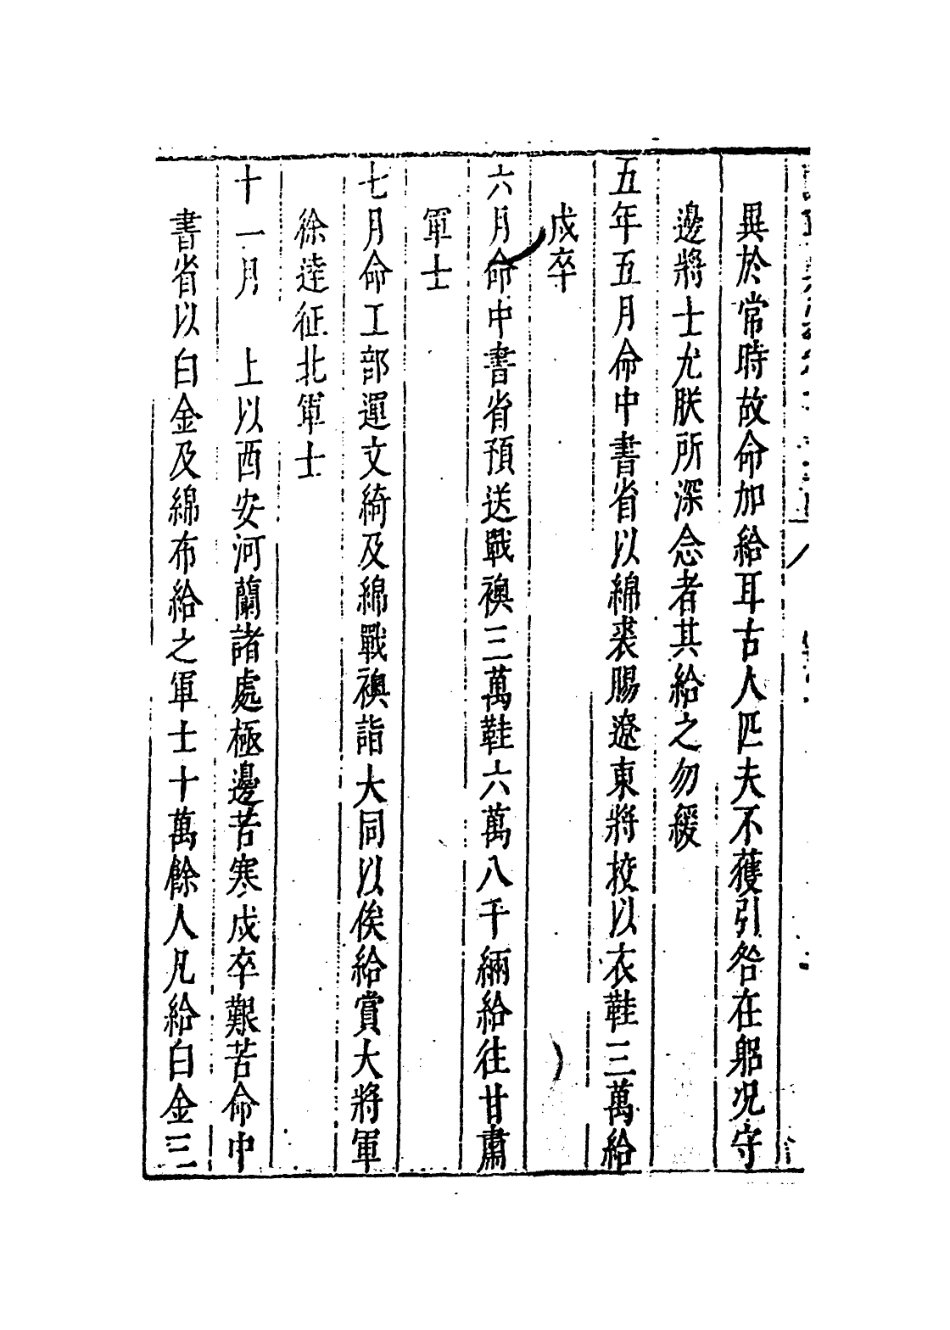 異於常時故命加給耳古人匹夫不獲引咎在躬况守
邊將士尤朕所深念者其給之勿緩
五年五月命中書省以綿裘賜遼東將校以衣鞋三萬給
戍卒
六月命中書省預送戰襖三萬鞋六萬八千緉給往甘肅
軍士
七月命工部運文綺及綿戰襖詣大同以俟給賞大將軍
徐逵征北軍士
十一月　上以西安河蘭諸處極邊苦寒戍卒艱苦命中
書省以白金及綿布給之軍士十萬餘人凡給白金三